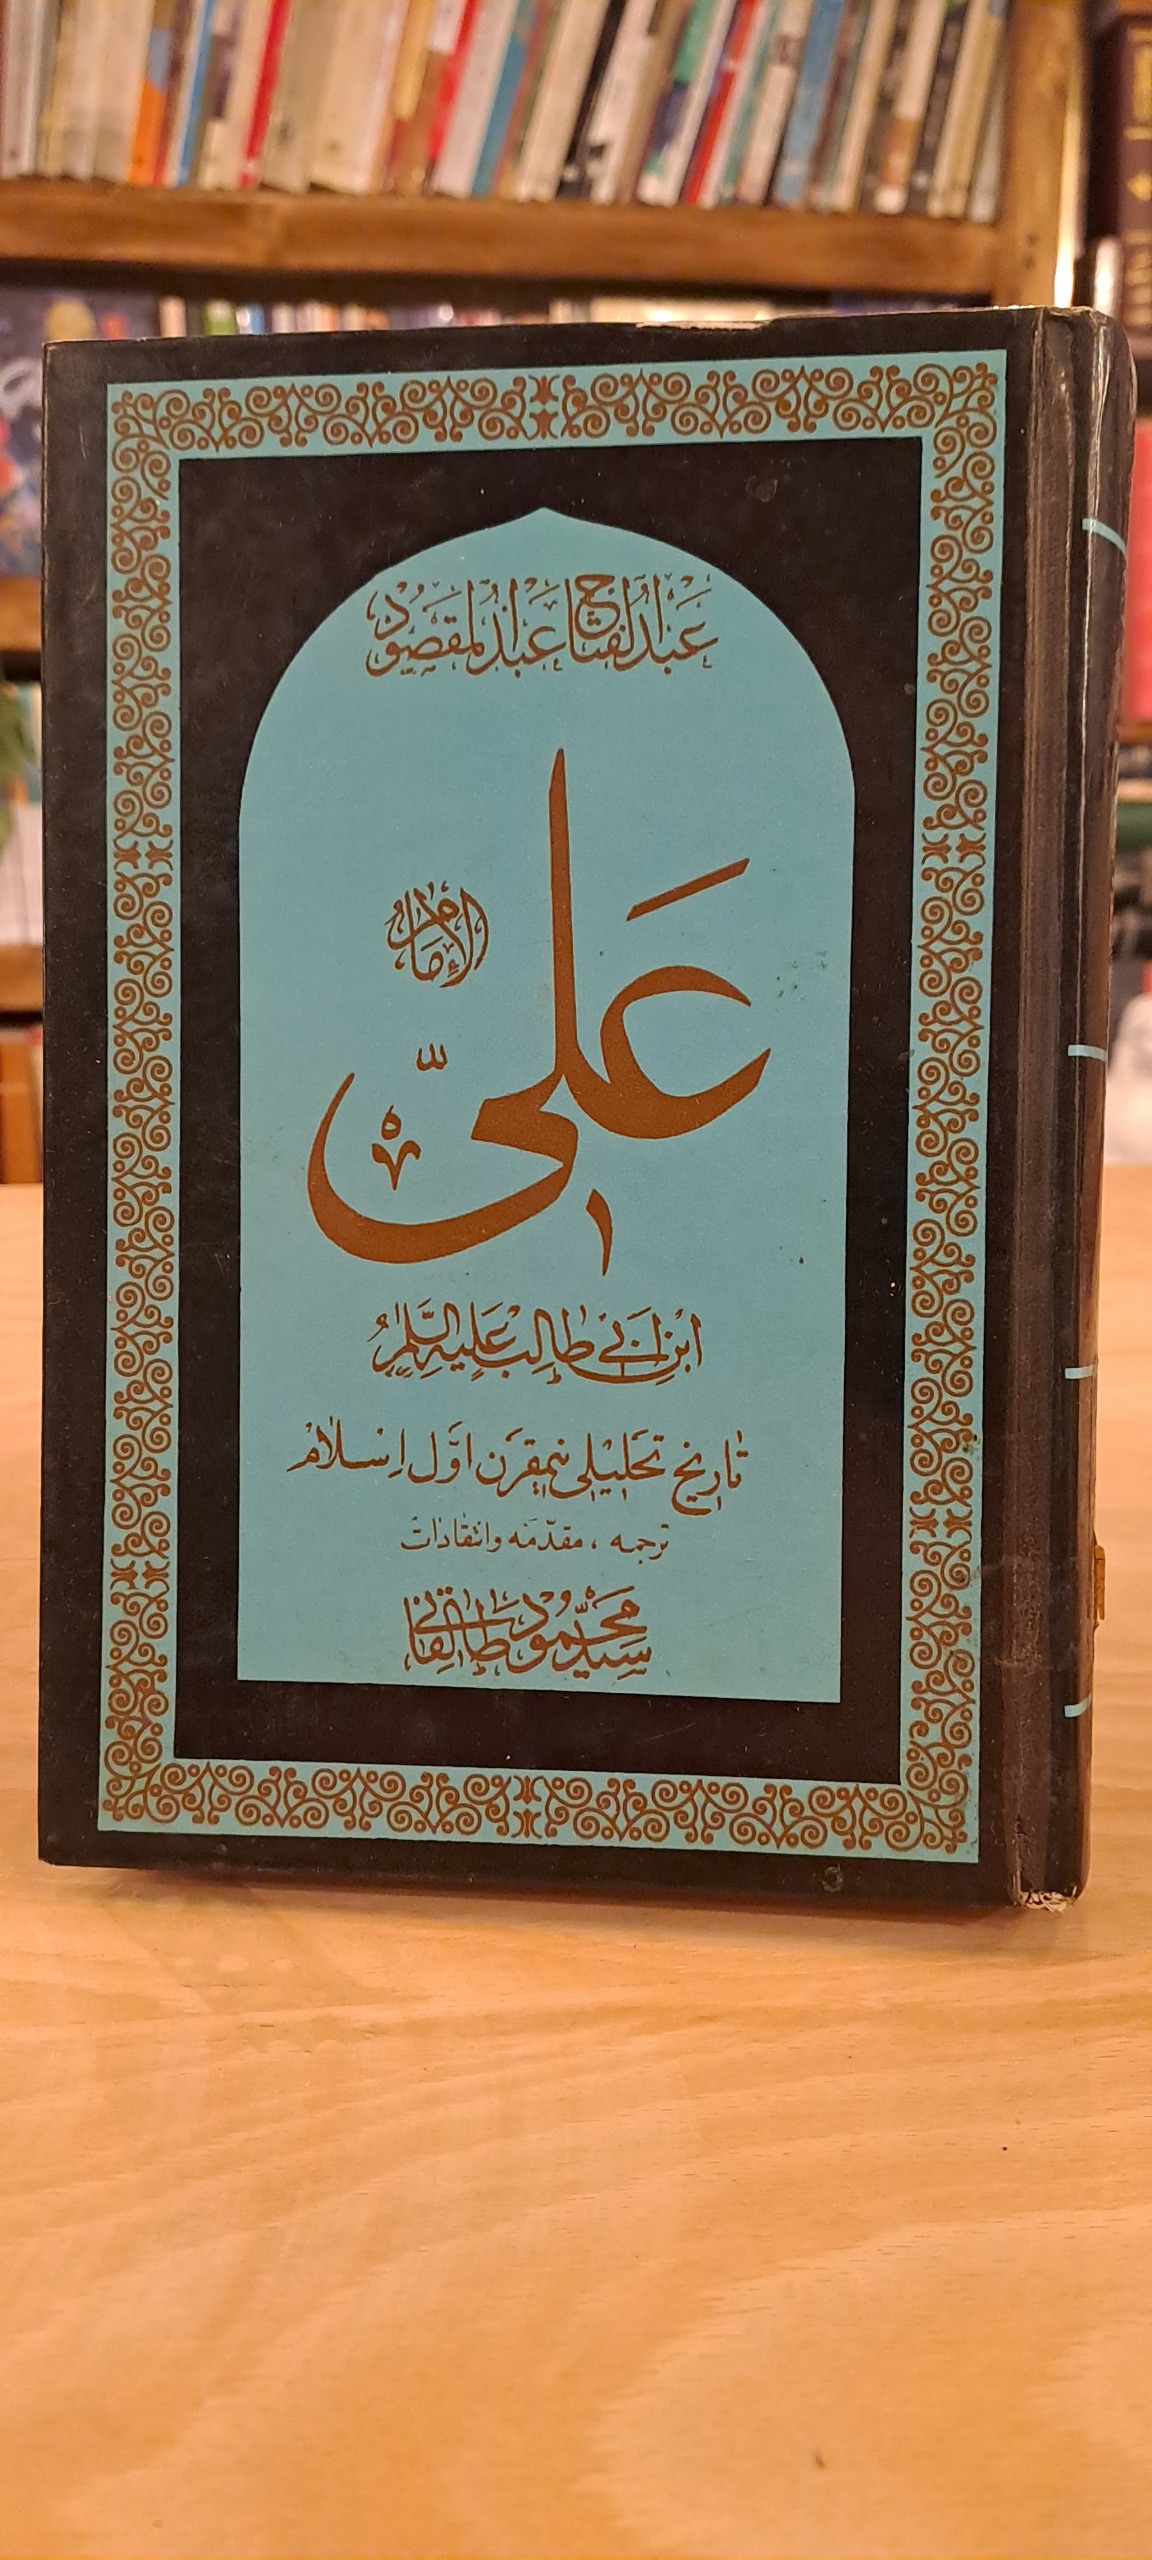 عبدالفتاح عبدالمقصود
الإمام
علیّ
ابن ابی طالب علیه السلام
تاریخ تحلیلی نیمقرن اوّل اسلام
ترجمه ، مقدّمه وانتقادات
سیّد محمود طالقانی